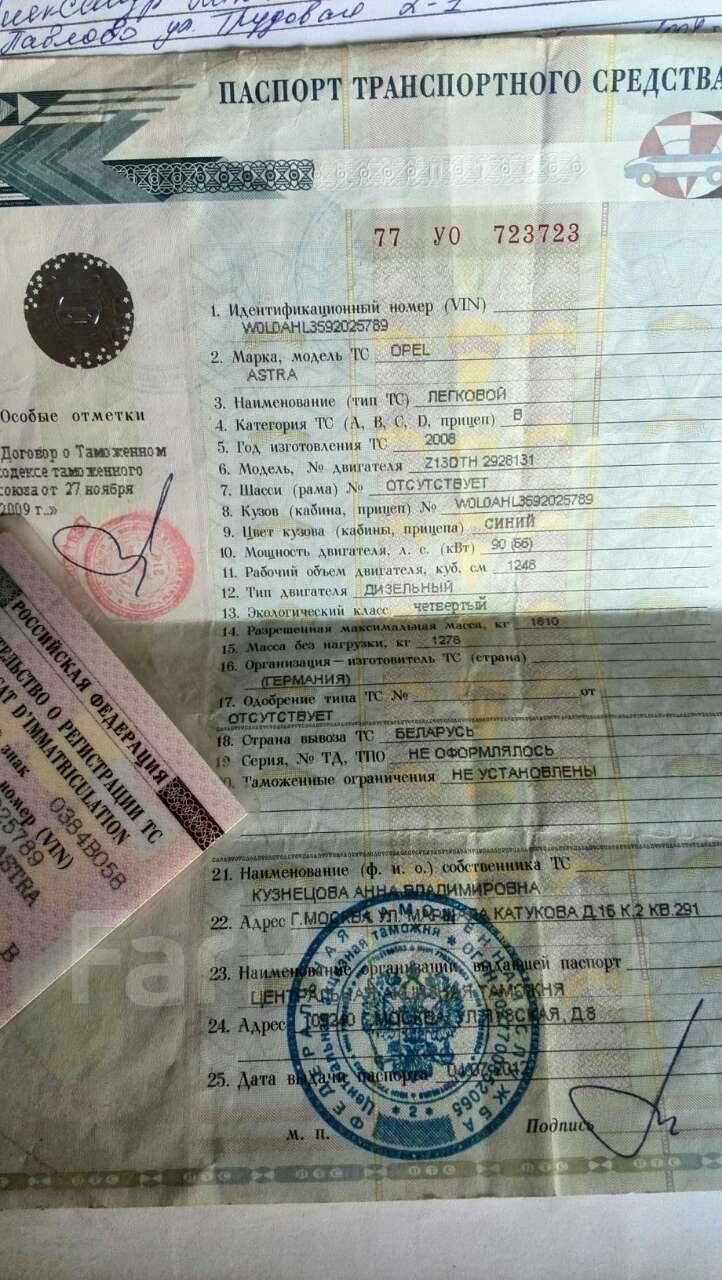 Павлово ул. Трудовая 2-1
ПАСПОРТ ТРАНСПОРТНОГО СРЕДСТВА
77 УО 723723
1. Идентификационный номер (VIN)
W0L0AHL3592025789
2. Марка, модель ТС OPEL
ASTRA
3. Наименование (тип ТС) ЛЕГКОВОЙ
4. Категория ТС (А, В, С, D, прицеп) В
5. Год изготовления ТС 2008
6. Модель, № двигателя Z13DTH 2928131
7. Шасси (рама) № ОТСУТСТВУЕТ
8. Кузов (кабина, прицеп) № W0L0AHL3592025789
9. Цвет кузова (кабины, прицепа) СИНИЙ
10. Мощность двигателя, л. с. (кВт) 90 (66)
11. Рабочий объем двигателя, куб. см 1248
12. Тип двигателя ДИЗЕЛЬНЫЙ
13. Экологический класс четвертый
14. Разрешенная максимальная масса, кг 1810
15. Масса без нагрузки, кг 1278
16. Организация — изготовитель ТС (страна)
(ГЕРМАНИЯ)
17. Одобрение типа ТС № от
ОТСУТСТВУЕТ
18. Страна вывоза ТС БЕЛАРУСЬ
19 Серия, № ТД, ТПО НЕ ОФОРМЛЯЛОСЬ
0. Таможенные ограничения НЕ УСТАНОВЛЕНЫ
21. Наименование (ф. и. о.) собственника ТС
КУЗНЕЦОВА АННА ВЛАДИМИРОВНА
22. Адрес Г.МОСКВА УЛ. МАРШАЛА КАТУКОВА Д.16 К.2 КВ.291
23. Наименование организации, выдавшей паспорт
ЦЕНТРАЛЬНАЯ АКЦИЗНАЯ ТАМОЖНЯ
24. Адрес 109240 Г.МОСКВА, УЛ.ЯУЗСКАЯ, Д.8
25. Дата выдачи паспорта
М. П. Подпись
Особые отметки
Договор о Таможенном
одексе таможенного
союза от 27 ноября
2009 г..»
РОССИЙСКАЯ ФЕДЕРАЦИЯ
ТЕЛЬСТВО О РЕГИСТРАЦИИ ТС
CAT D'IMMATRICULATION
знак О384ВО58
номер (VIN)
25789
ASTRA
В
ФЕДЕРАЛЬНАЯ ТАМОЖЕННАЯ СЛУЖБА
Центральная акцизная таможня
* 2 *
ПТС